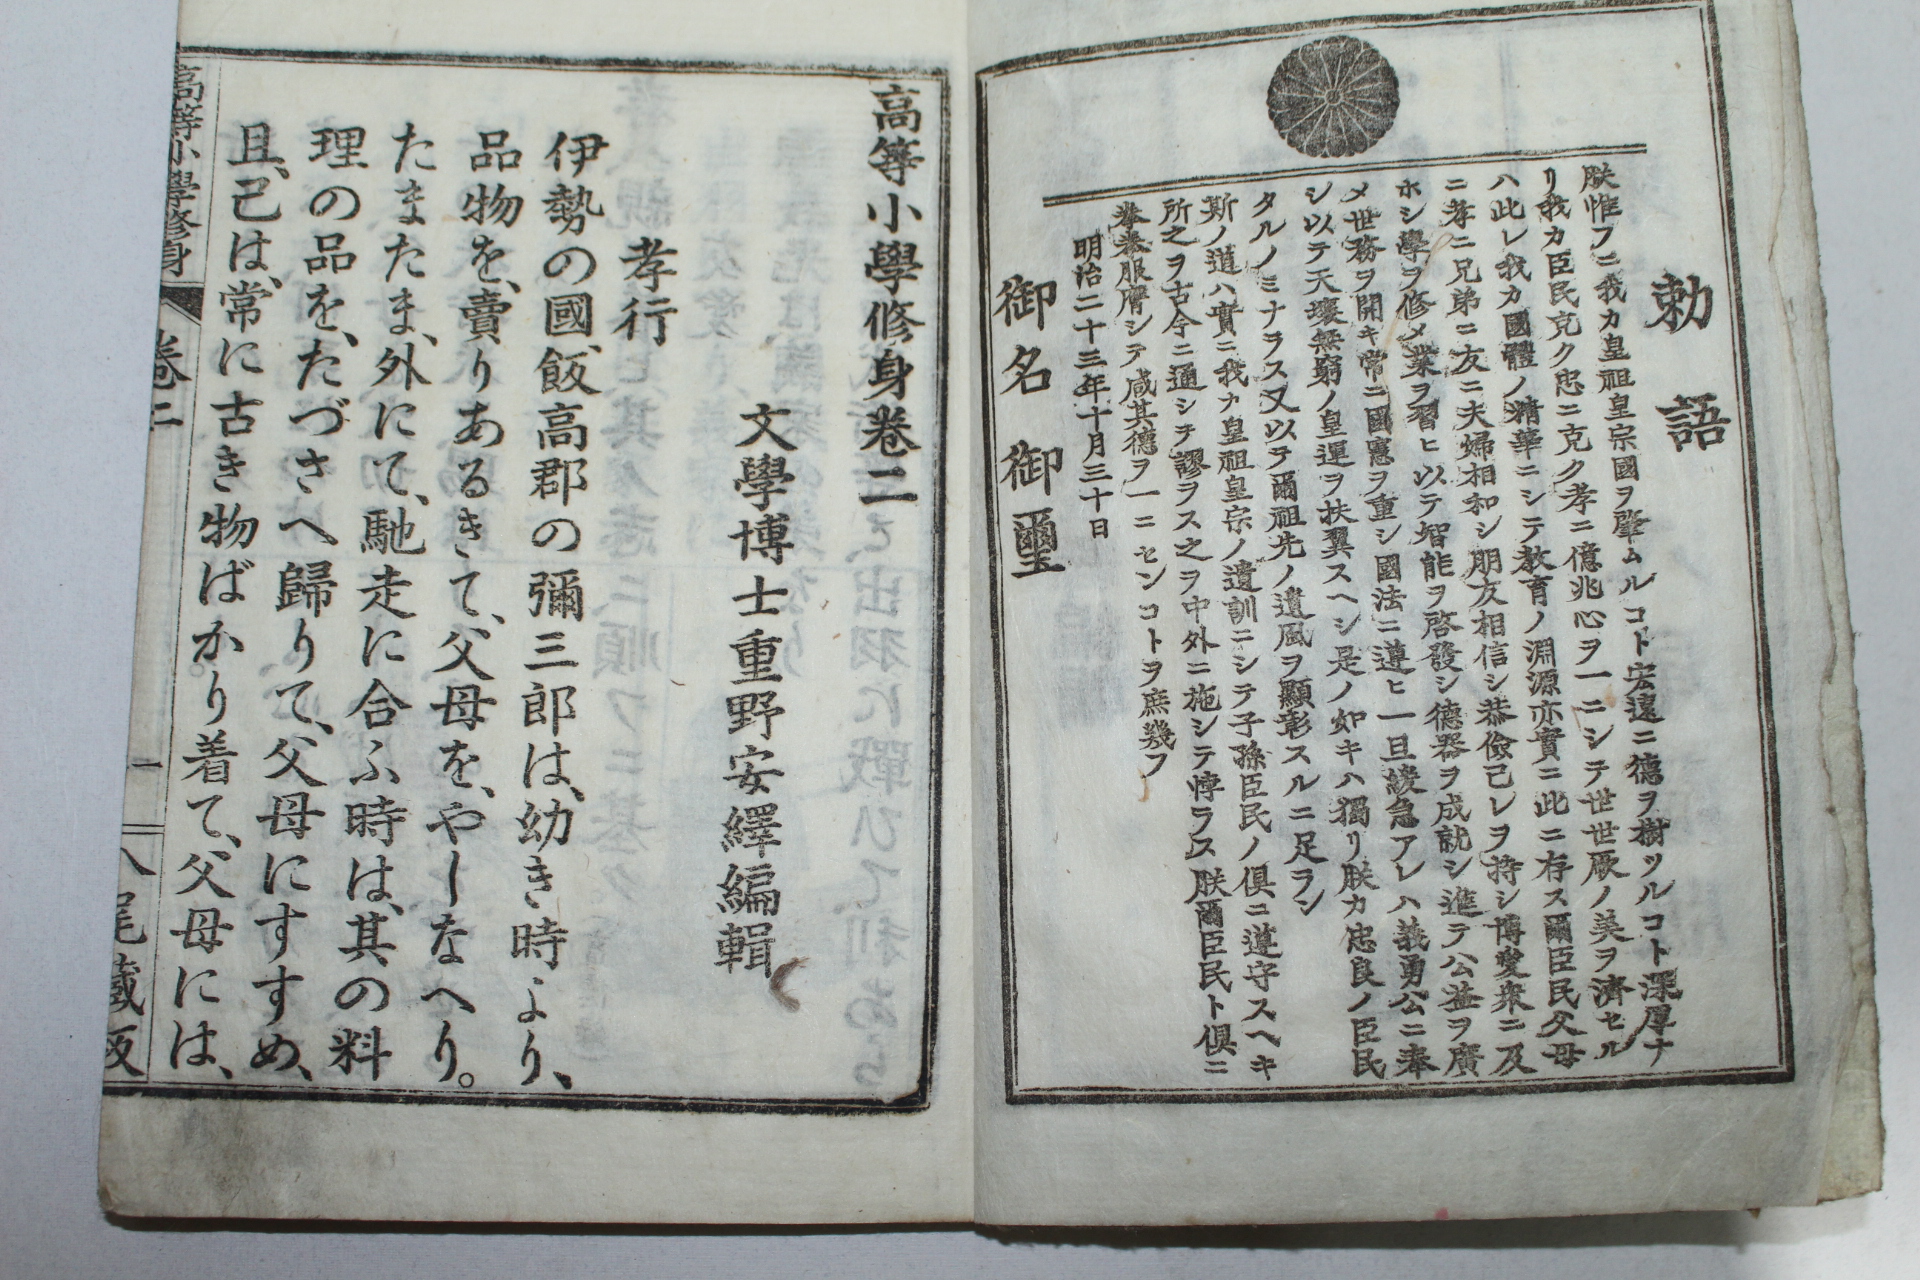 勅語
朕惟フニ我カ皇祖皇宗國ヲ肇ムルコト宏遠ニ德ヲ樹ツルコト深厚ナ
リ我カ臣民克ク忠ニ克ク孝ニ億兆心ヲ一ニシテ世世厥ノ美ヲ濟セル
ハ此レ我カ國體ノ精華ニシテ教育ノ淵源亦實ニ此ニ存ス爾臣民父母
ニ孝ニ兄弟ニ友ニ夫婦相和シ朋友相信シ恭儉己レヲ持シ博愛衆ニ及
ホシ學ヲ修メ業ヲ習ヒ以テ智能ヲ啓發シ德器ヲ成就シ進テ公益ヲ廣
メ世務ヲ開キ常ニ國憲ヲ重シ國法ニ遵ヒ一旦緩急アレハ義勇公ニ奉
シ以テ天壤無窮ノ皇運ヲ扶翼スヘシ是ノ如キハ獨リ朕カ忠良ノ臣民
タルノミナラス又以テ爾祖先ノ遺風ヲ顯彰スルニ足ラン
斯ノ道ハ實ニ我カ皇祖皇宗ノ遺訓ニシテ子孫臣民ノ俱ニ遵守スヘキ
所之ヲ古今ニ通シテ謬ラス之ヲ中外ニ施シテ悖ラス朕爾臣民ト俱ニ
拳拳服膺シテ咸其德ヲ一ニセンコトヲ庶幾フ
明治二十三年十月三十日
御名御璽
高等小學修身卷二
文學博士重野安繹編輯
孝行
伊勢の國、飯高郡の彌三郎は、幼き時より、
品物を、賣りあるきて、父母を、やしなへり。
たまたま、外にて、馳走に合ふ時は、其の料
理の品を、たづさへ歸りて、父母にすすめ、
且、己は、常に古き物ばかり着て、父母には、
高等小學修身 卷二 一 八尾藏版